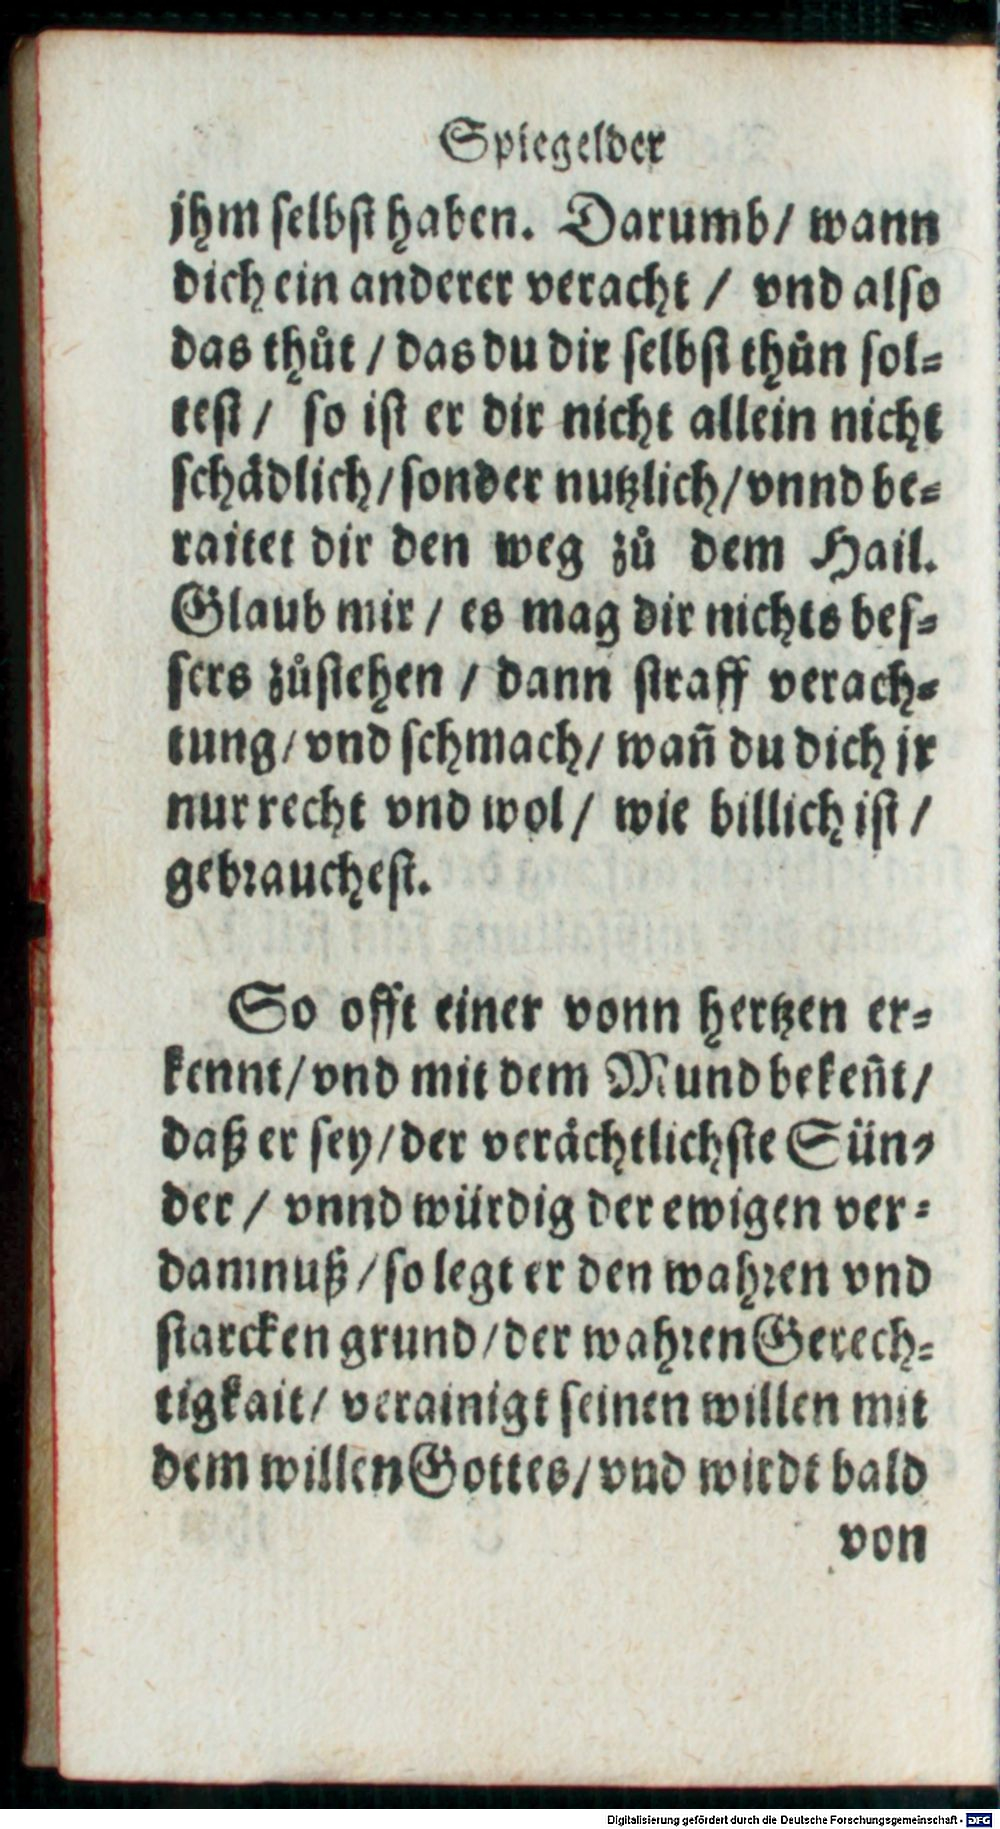 Spiegel der
jhm selbst haben. Darumb/ wann
dich ein anderer veracht / vnd also
das thůt / das du dir selbst thůn sol=
test / so ist er dir nicht allein nicht
schådlich/ sonder nutzlich/ vnnd be=
raitet dir den weg zů dem Hail.
Glaub mir / es mag dir nichts bes=
sers zůstehen / dann straff verach=
tung/ vnd schmach/ wañ du dich jr
nur recht vnd wol/ wie billich ist /
gebrauchest.
So offt einer vonn hertzen er=
kennt/ vnd mit dem Mund bekeñt/
daß er sey/ der veråchtlichste Sün=
der / vnnd würdig der ewigen ver=
damnuß / so legt er den wahren vnd
starcken grund / der wahren Gerech=
tigkait/ verainigt seinen willen mit
dem willen Gottes/ vnd wirdt bald
von
Digitalisierung gefördert durch die Deutsche Forschungsgemeinschaft - DFG